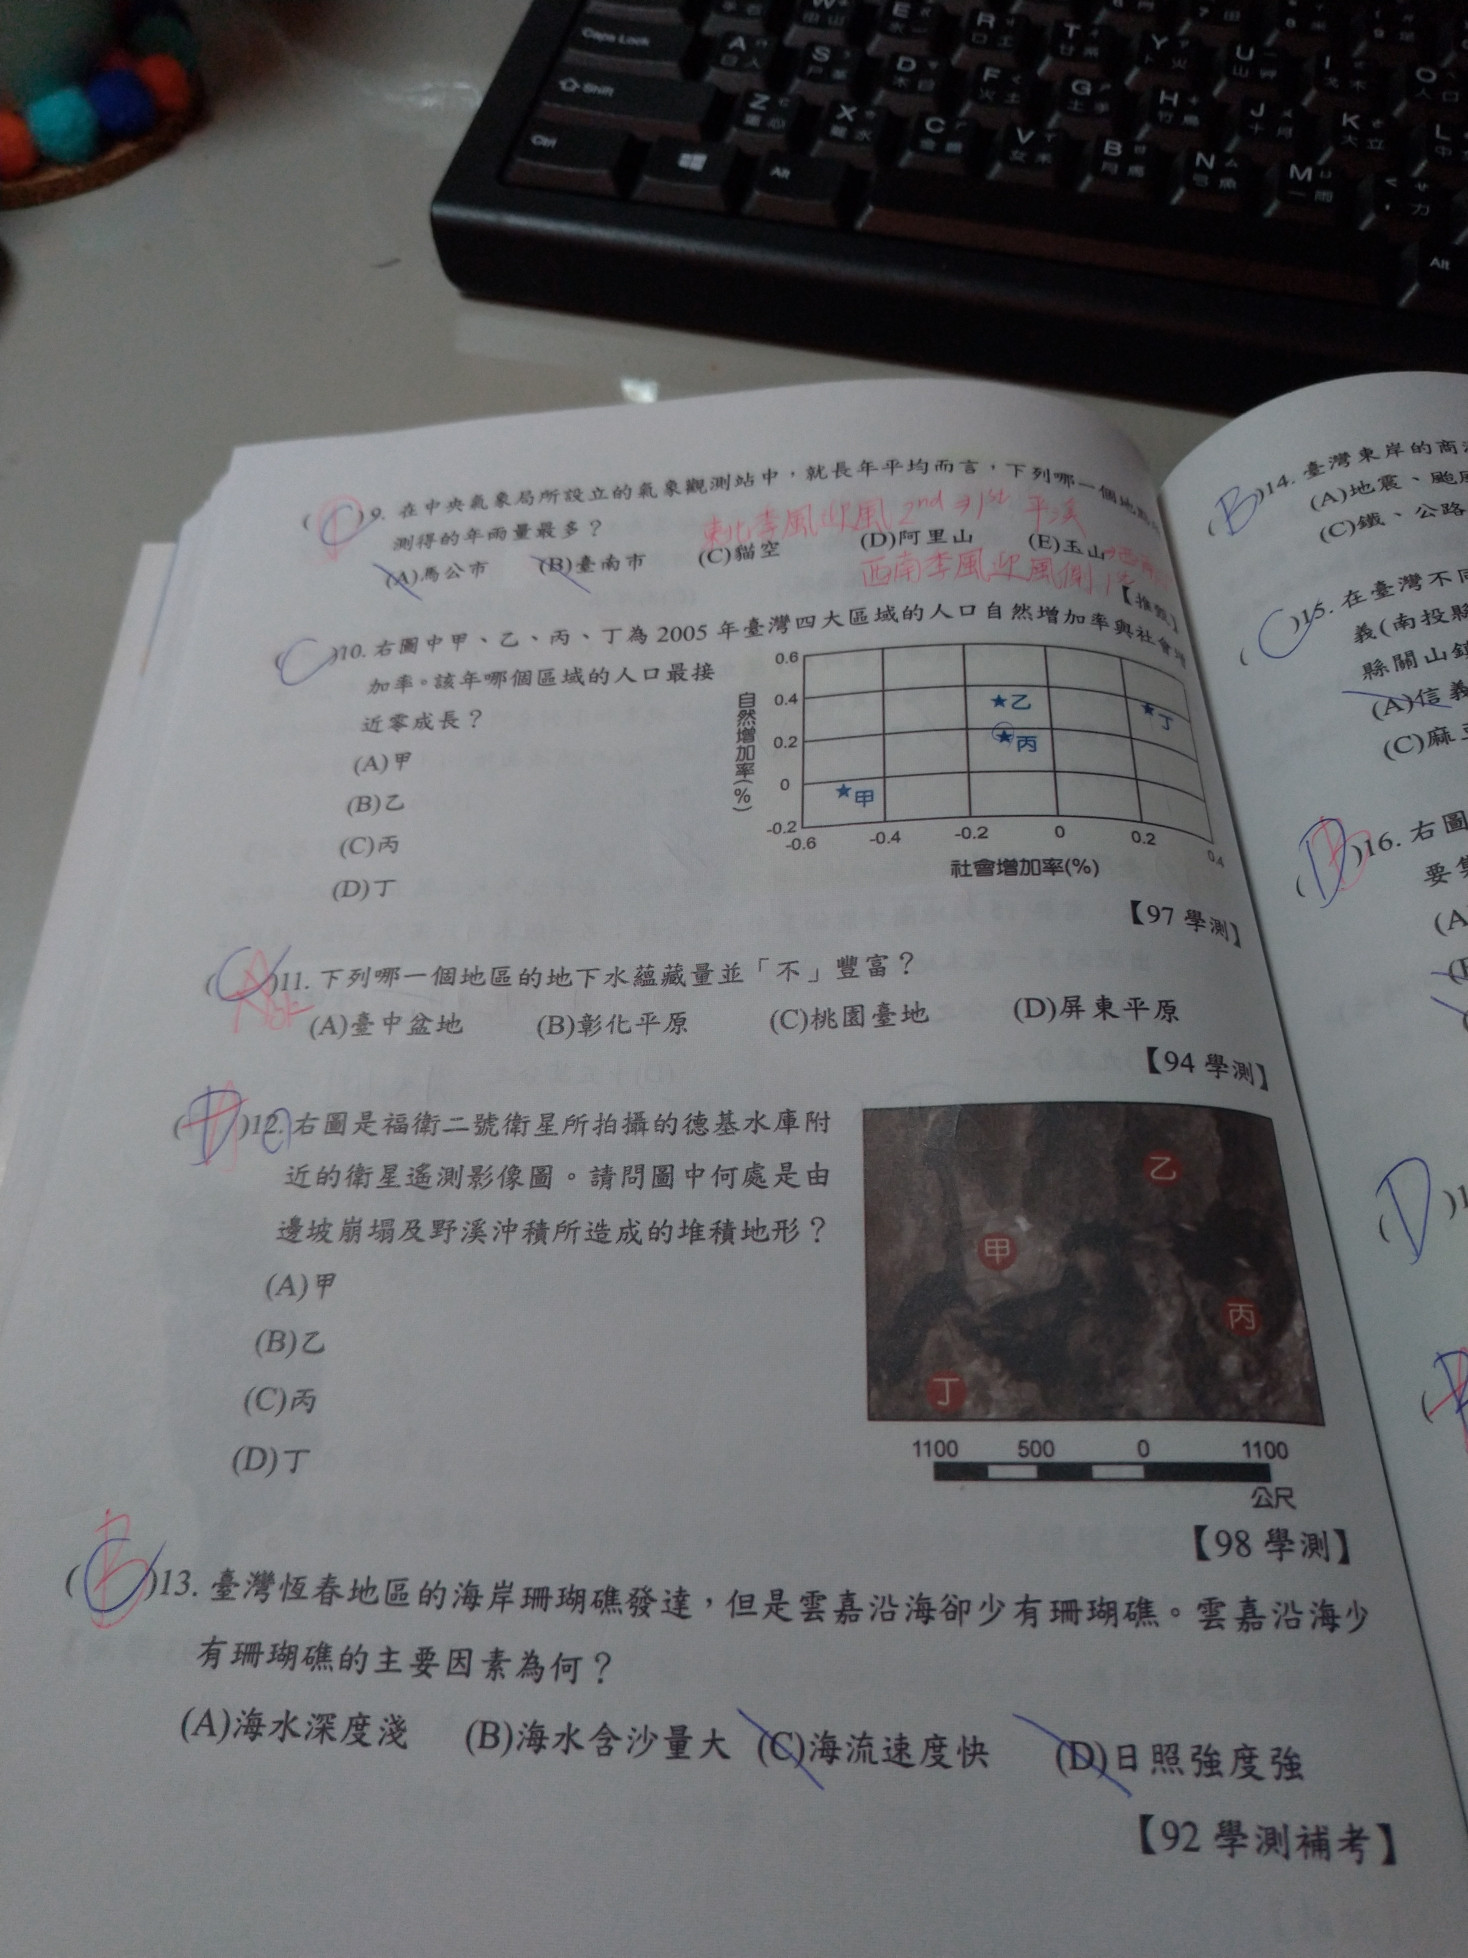 Caps Lock
Shift
Ctrl
Alt
Alt
W
E
R
T
Y
U
I
O
A
S
D
F
G
H
J
K
L
Z
X
C
V
B
N
M
( )9. 在中央氣象局所設立的氣象觀測站中,就長年平均而言,下列哪一個地
測得的年雨量最多?
東北季風迎風 2nd → 1st 平溪
(A)馬公市 (B)臺南市 (C)貓空 (D)阿里山 (E)玉山
西南季風迎風側 1st
(C)10. 右圖中甲、乙、丙、丁為 2005 年臺灣四大區域的人口自然增加率與社會增
加率。該年哪個區域的人口最接
近零成長?
(A)甲
(B)乙
(C)丙
(D)丁
自然增加率(%)
0.6
0.4
0.2
0
-0.2
乙
丁
丙
甲
-0.6 -0.4 -0.2 0 0.2 0.4
社會增加率(%)
【97 學測】
( )11. 下列哪一個地區的地下水蘊藏量並「不」豐富?
(A)臺中盆地 (B)彰化平原 (C)桃園臺地 (D)屏東平原
【94 學測】
( )12. 右圖是福衛二號衛星所拍攝的德基水庫附
近的衛星遙測影像圖。請問圖中何處是由
邊坡崩塌及野溪沖積所造成的堆積地形?
(A)甲
(B)乙
(C)丙
(D)丁
乙
甲
丙
丁
1100 500 0 1100
公尺
【98 學測】
(B)13. 臺灣恆春地區的海岸珊瑚礁發達,但是雲嘉沿海卻少有珊瑚礁。雲嘉沿海少
有珊瑚礁的主要因素為何?
(A)海水深度淺 (B)海水含沙量大 (C)海流速度快 (D)日照強度強
【92 學測補考】
(B)14. 臺灣東岸的商
(A)地震、颱
(C)鐵、公路
(C)15. 在臺灣不同
義(南投縣
縣關山鎮
(A)信義
(C)麻豆
( )16. 右圖
要集
(A
(D)1